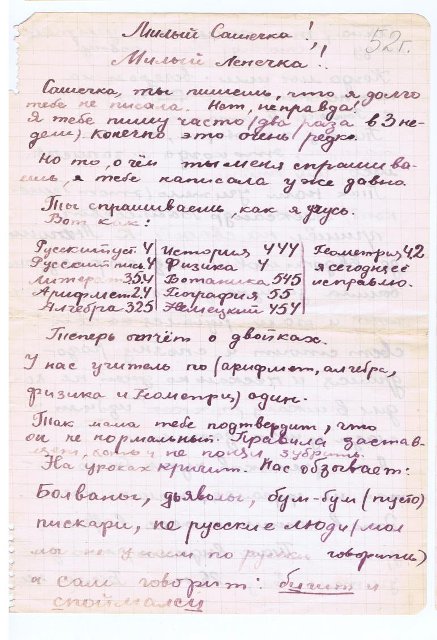 Милый Сашечка!
52г.
Милый Лепечка!!
Сашечка, ты пишешь, что я долго
тебе не писала. Нет, неправда!
Я тебе пишу часто (два раза в 3 не-
дели). Конечно, это очень редко.
Но то, о чём ты меня спрашива-
ешь, я тебе написала уже давно.
Ты спрашиваешь, как я учусь.
Вот как:
Русский уст. 4 История 444 Геометрия 42
Русский письм. 4 Физика 4 я сегодня её
Литерат 354 Ботаника 545 исправлю.
Арифмет 24 География 55
Алгебра 325 Немецкий 454
Теперь отчёт о двойках.
У нас учитель по (арифмет, алгебра,
физика и Геометрия) один.
Так мама тебе подтвердит, что
он не нормальный. Правила застав-
ляет, коль не понял, зубрить.
На уроках кричит. Нас обзывает:
Болваны, дьяволы, бум-бум (пусто)
пискари, не русские люди (мол
мы не умеем по русски говорить)
а сам говорит: бигит и
споймался